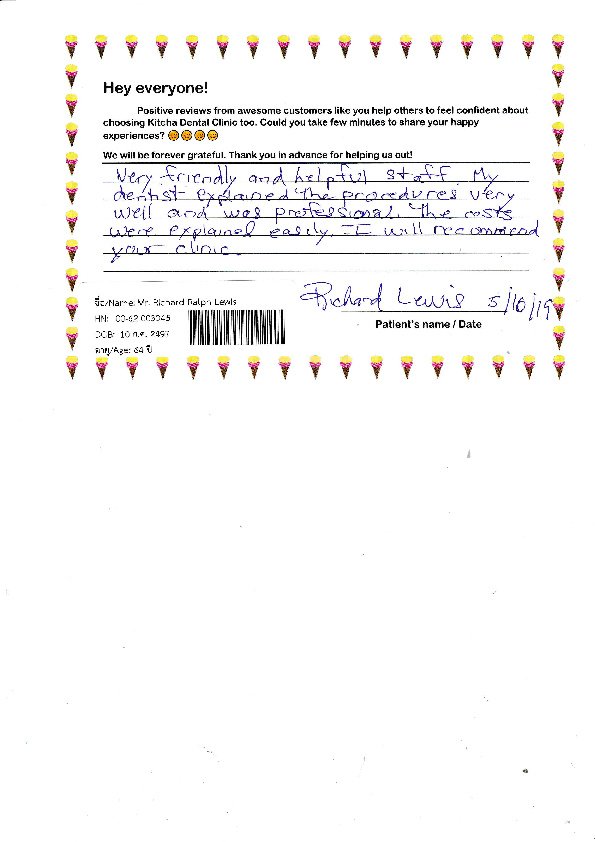 Hey everyone!
Positive reviews from awesome customers like you help others to feel confident about
choosing Kitcha Dental Clinic too. Could you take few minutes to share your happy
experiences? 😊😊😊😊
We will be forever grateful. Thank you in advance for helping us out!
Very friendly and helpful staff. My
dentist explained the procedures very
well and was professional. The costs
were explained easily. I will recommend
your clinic.
Richard Lewis 5/10/19
Patient's name / Date
ชื่อ/Name: Mr. Richard Ralph Lewis
HN: 00-62 003045
DOB: 10 ก.ค. 2497
อายุ/Age: 64 ปี